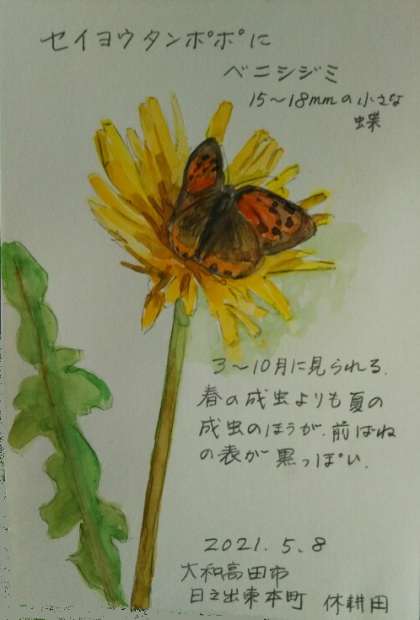 セイヨウタンポポに
ベニシジミ
15〜18mmの小さな
蝶
3〜10月に見られる.
春の成虫よりも夏の
成虫のほうが、前ばね
の表が黒っぽい.
2021.5.8
大和高田市
日之出東本町 休耕田